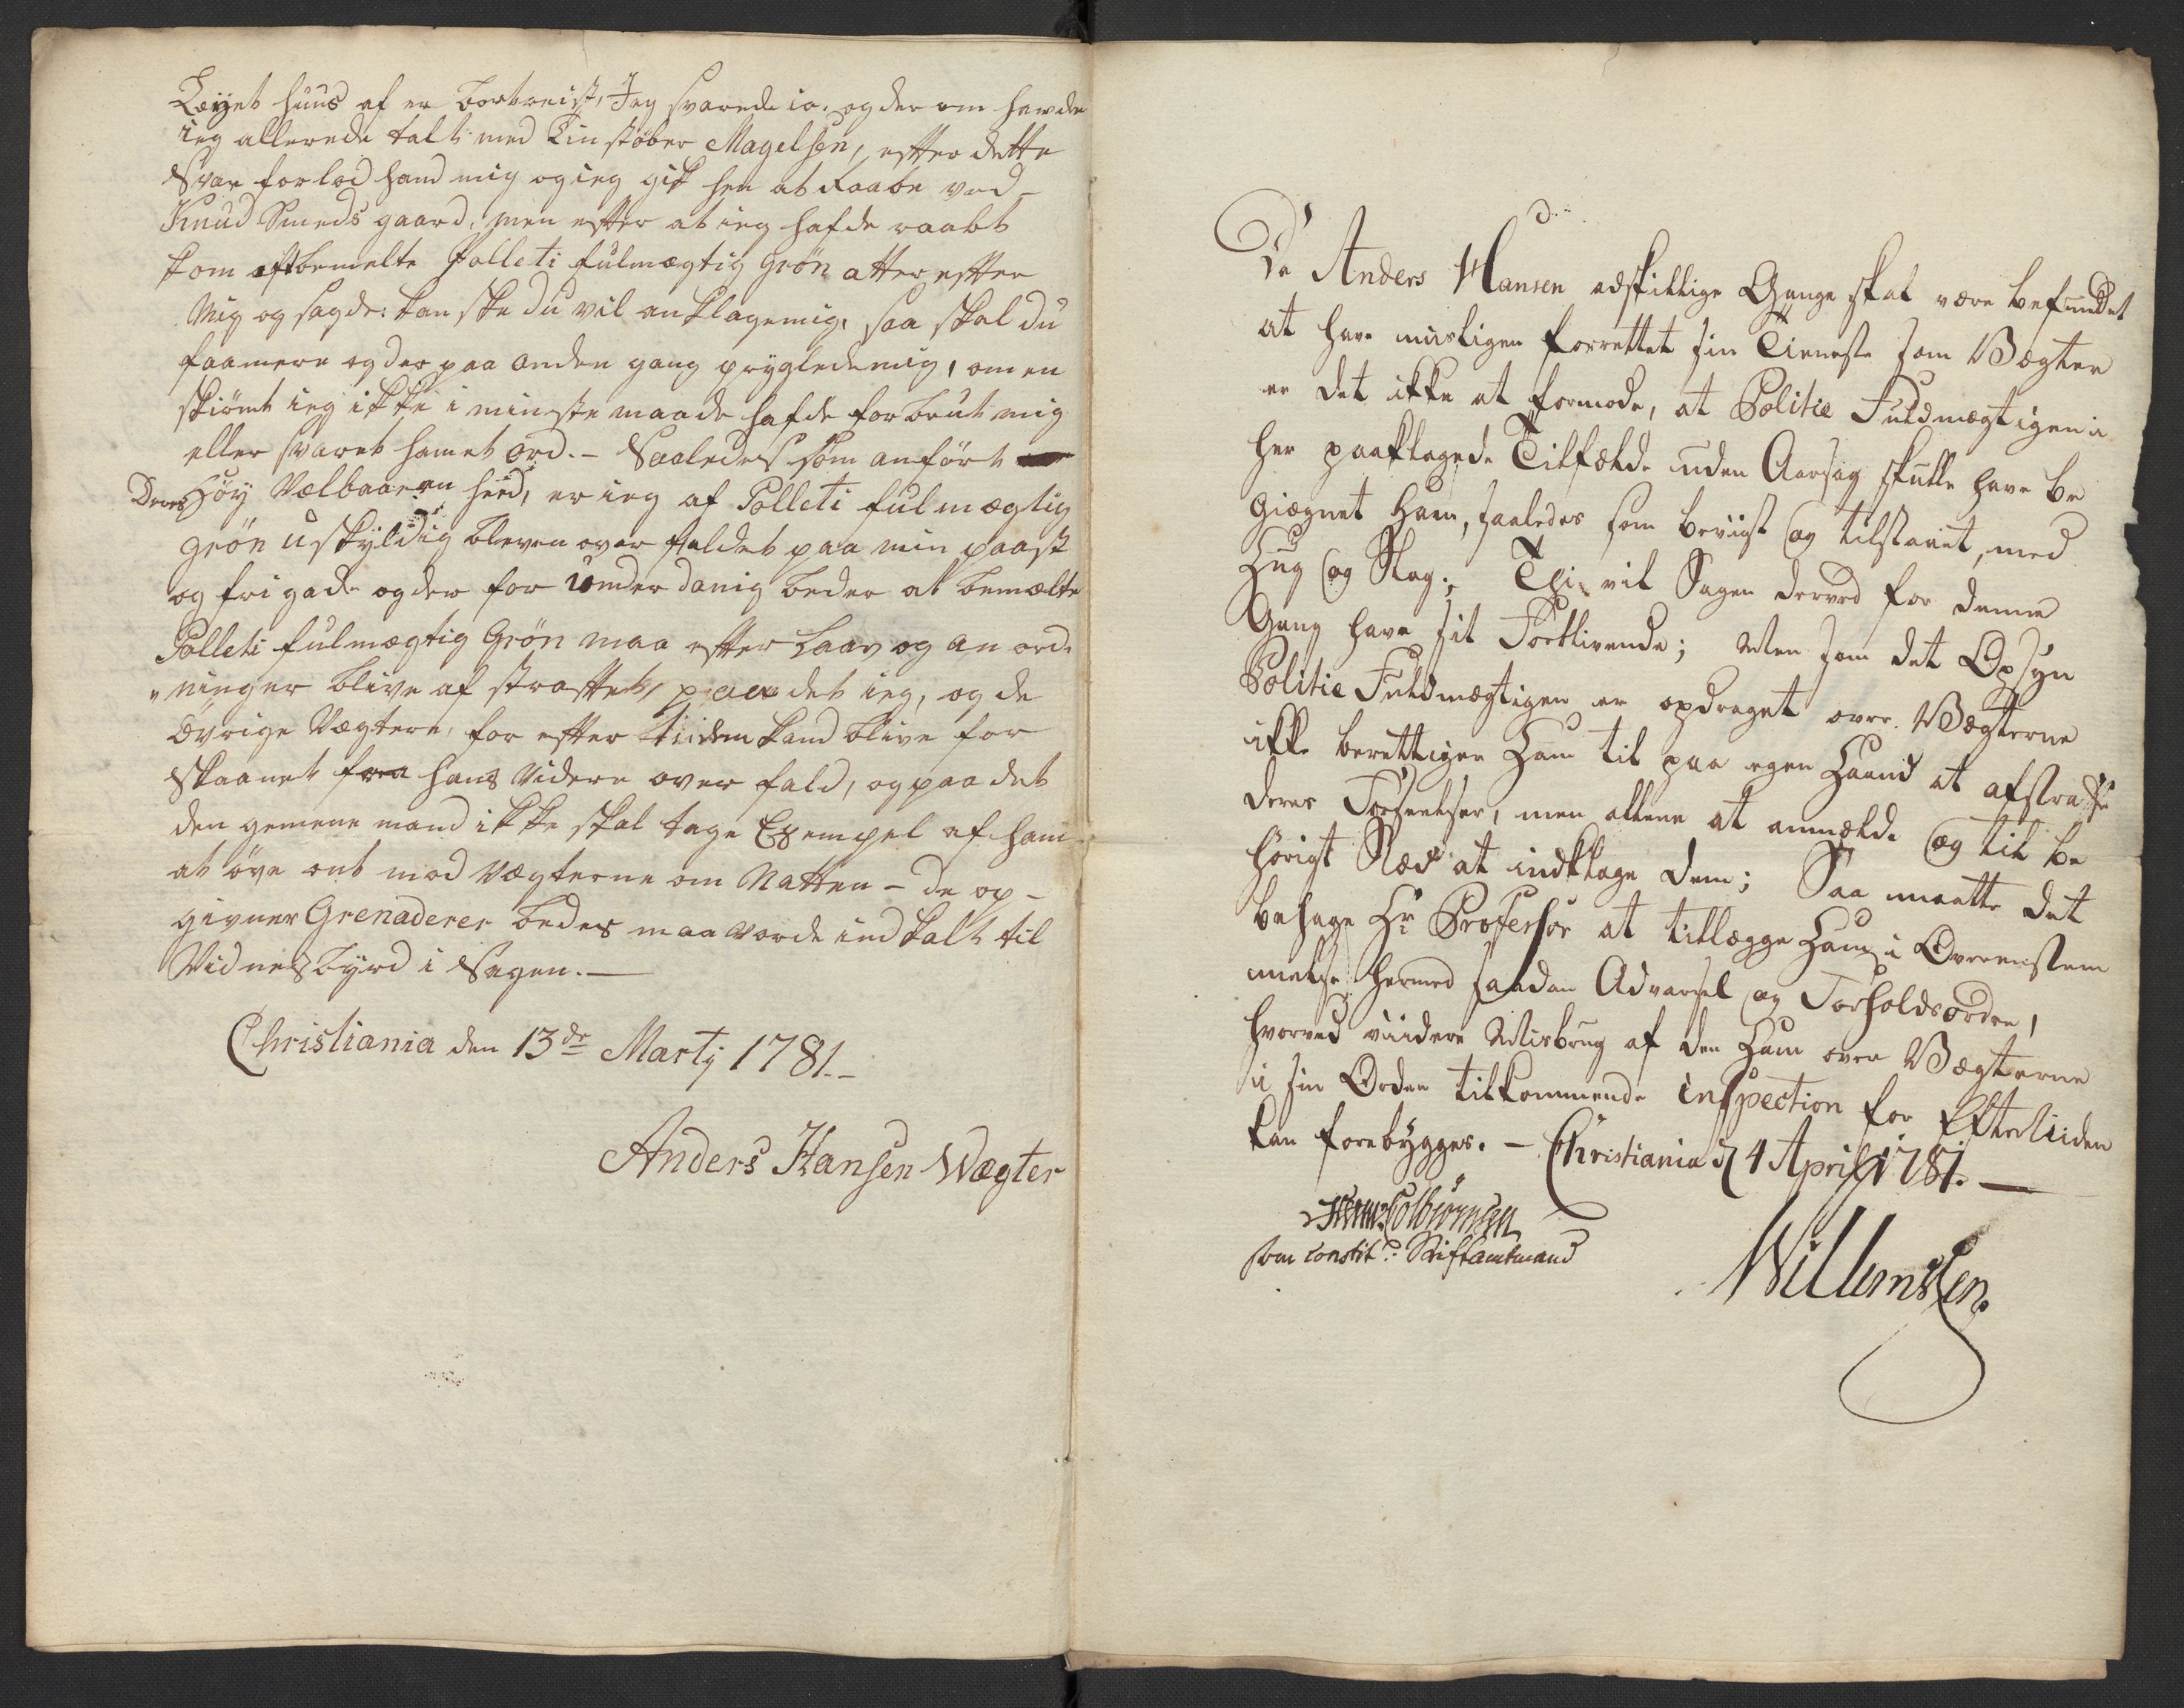 Leyet huus af er bortreist, Jeg svarede io, og der om hawde
ieg allerede talt med Tinstøber Magelsen, efter dette
Svar forlod hand mig og ieg gik hen at Raabe ved
Knud Smeds gaard, men efter at ieg hafde raabt
kom oftbemelte Polleti fulmægtig Grön atter efter
Mig og sagde: kan ske du vil anklage mig, saa skal du
faa mere og der paa anden gang pryglede mig, om en
skiönt ieg ikke i minste maade hafde forbrut mig
eller svaret ham et ord. - Saaledes som anfört
Deres Höy Vælbaaren heed, er ieg af Polleti fulmægtig
Grön uskyldig bleven over faldet paa min paast
og fri gade og der for under danig beder at bemælte
Polleti fulmægtig Grön maa efter Laav og an ord,
"ninger blive af straffet, paa det ieg, og de
Övrige Vægtere, for efter tiiden kand blive for
Skaanet fra hans Videre over fald, og paa det
den gemene mand ikke skal tage Exempel af ham
at öve ont mod Vægterne om Natten - de op-
givner Grenaderer bedes maa vorde ind kalt til
Vidnesbyrd i Sagen. -
Christiania den 13de Martj 1781. -
Anders Hansen Wægter
Da Anders Hansen adskillige Gange skal være befundet
at have misligen forrettet sin Tieneste som Vægter
er det ikke at formode, at Politie Fuldmægtigen i
her paaklagede Tilfælde uden Aarsag skulle have be
giægnet Ham, saaledes som beviist og tilstaaet, med
Hug og Slag; Thi vil Sagen derved for denne
Gang have sit Forblivende; Men som det Opsyn
Politie Fuldmægtigen er opdraget over Vægterne
ikke berettiger Ham til paa egen Haand at afstraffe
deres Forseelser, men allene at anmælde og til be
hörigt Stæd at indklage dem; Saa maatte det
behage Hr Professor at tillægge Ham i Overeenstem
melse hermed saadan Advarsel og Forholdsordre,
hvorved viidere Misbrug af den Ham over Vægterne
i sin Orden tilkommende inspection for Eftertiiden
kan forebygges. - Christiania d 4 April 1781. -
Colbiörnsen
som constit: Stiftamtmand
Willumsen.